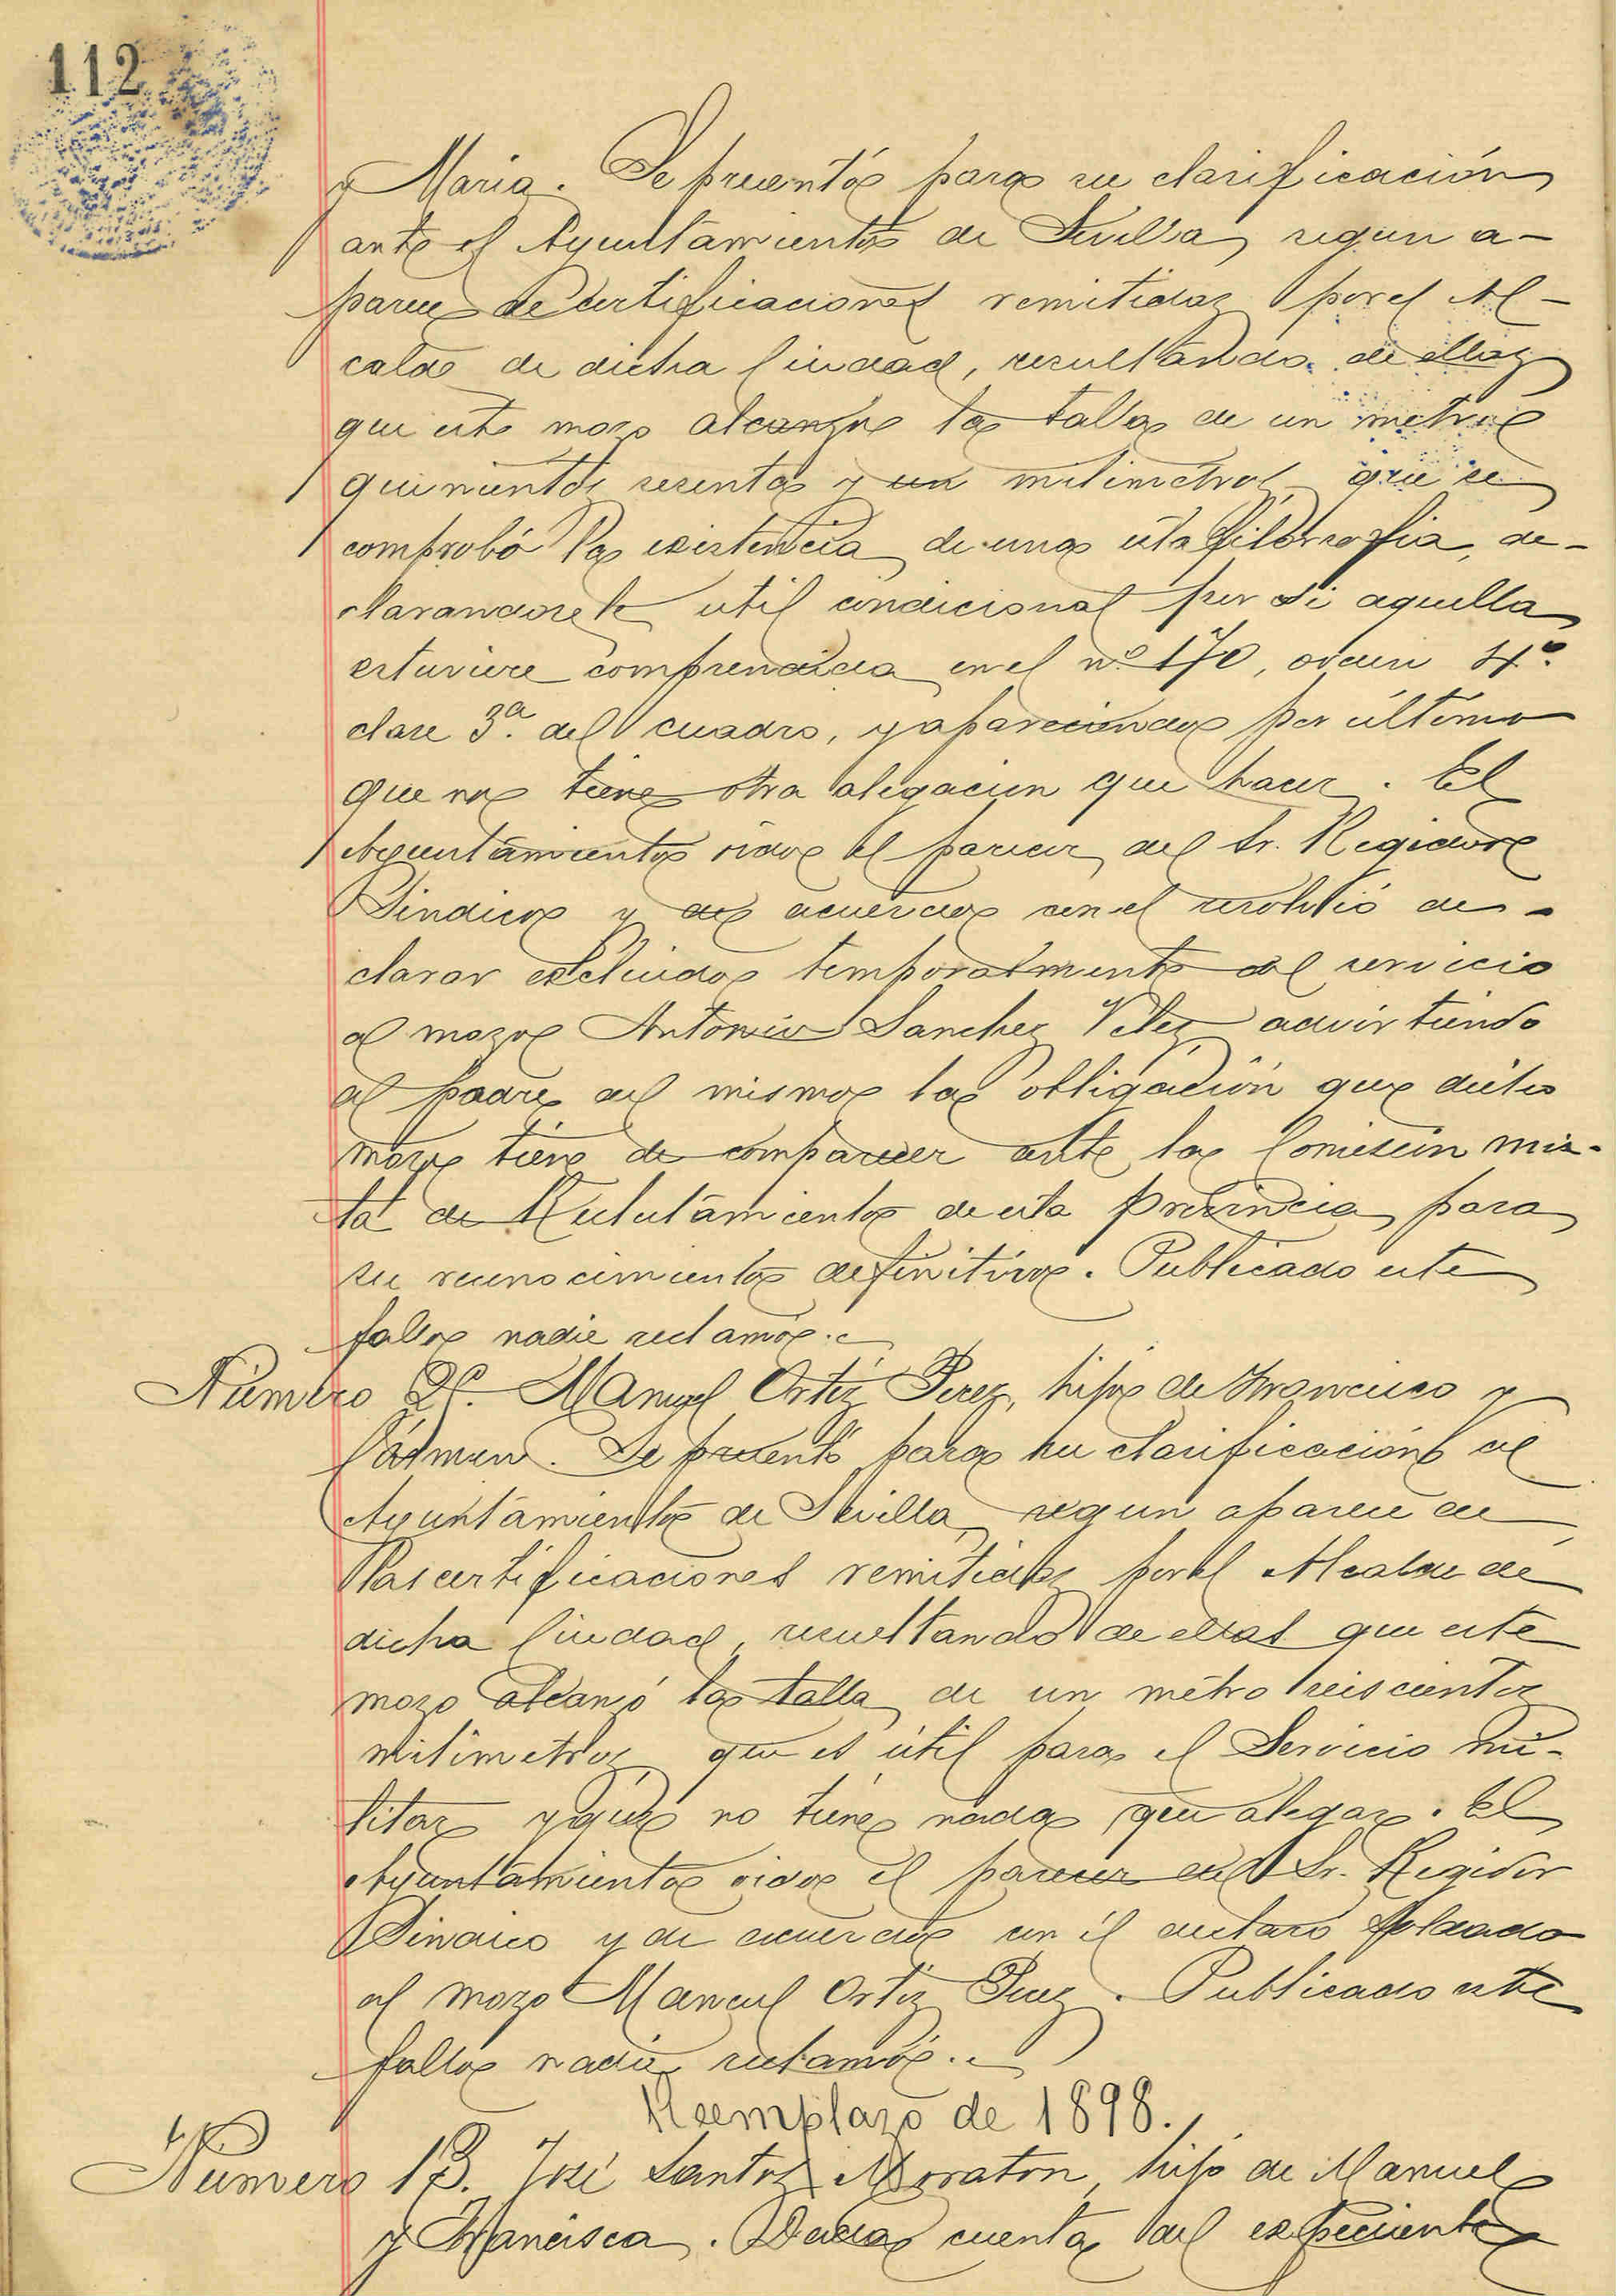 112
y Maria. Se presentó para su clasificación
ante el Ayuntamiento de Sevilla, segun a-
parece de certificaciones remitidas por el Al-
calde de dicha Ciudad, resultando de ellas
que este mozo alcanzó la talla de un metro
quinientos sesenta y un milimetros, que se
comprobó la existencia de una estafilorrafia, de-
clarandosele util condicional por si aquella
estuviere comprendida en el nº 170, orden 4º
clase 3ª del cuadro, y apareciendo por último
que no tiene otra alegacion que hacer. El
Ayuntamiento oido el parecer del Sr. Regidor
Sindico y de acuerdo con el resolvió de-
clarar escluido temporalmente del servicio
al mozo Antonio Sanchez Velez advirtiendo
al padre del mismo la obligación que dicho
mozo tiene de comparecer ante la Comision mis-
ta de Reclutamiento de esta provincia para
su reconocimiento definitivo. Publicado este
fallo nadie reclamó.
Número Manuel Ortiz Perez, hijo de Francisco y
Cármen. Se presentó para su clasificación al
Ayuntamiento de Sevilla, segun aparece de
las certificaciones remitidas por el Alcalde de
dicha Ciudad, resultando de ellas que este
mozo alcanzó la talla de un métro seiscientos
milimetros, que es útil para el Servicio mi-
litar y que no tiene nada que alegar. El
Ayuntamiento oido el parecer del Sr. Regidor
Sindico y de acuerdo con él declaró Soldado
al mozo Manuel Ortiz Perez. Publicado este
fallo nadie reclamó.
Reemplazo de 1898.
Número 13. José Santos Moraton, hijo de Manuel
y Francisca. Dada cuenta del espediente